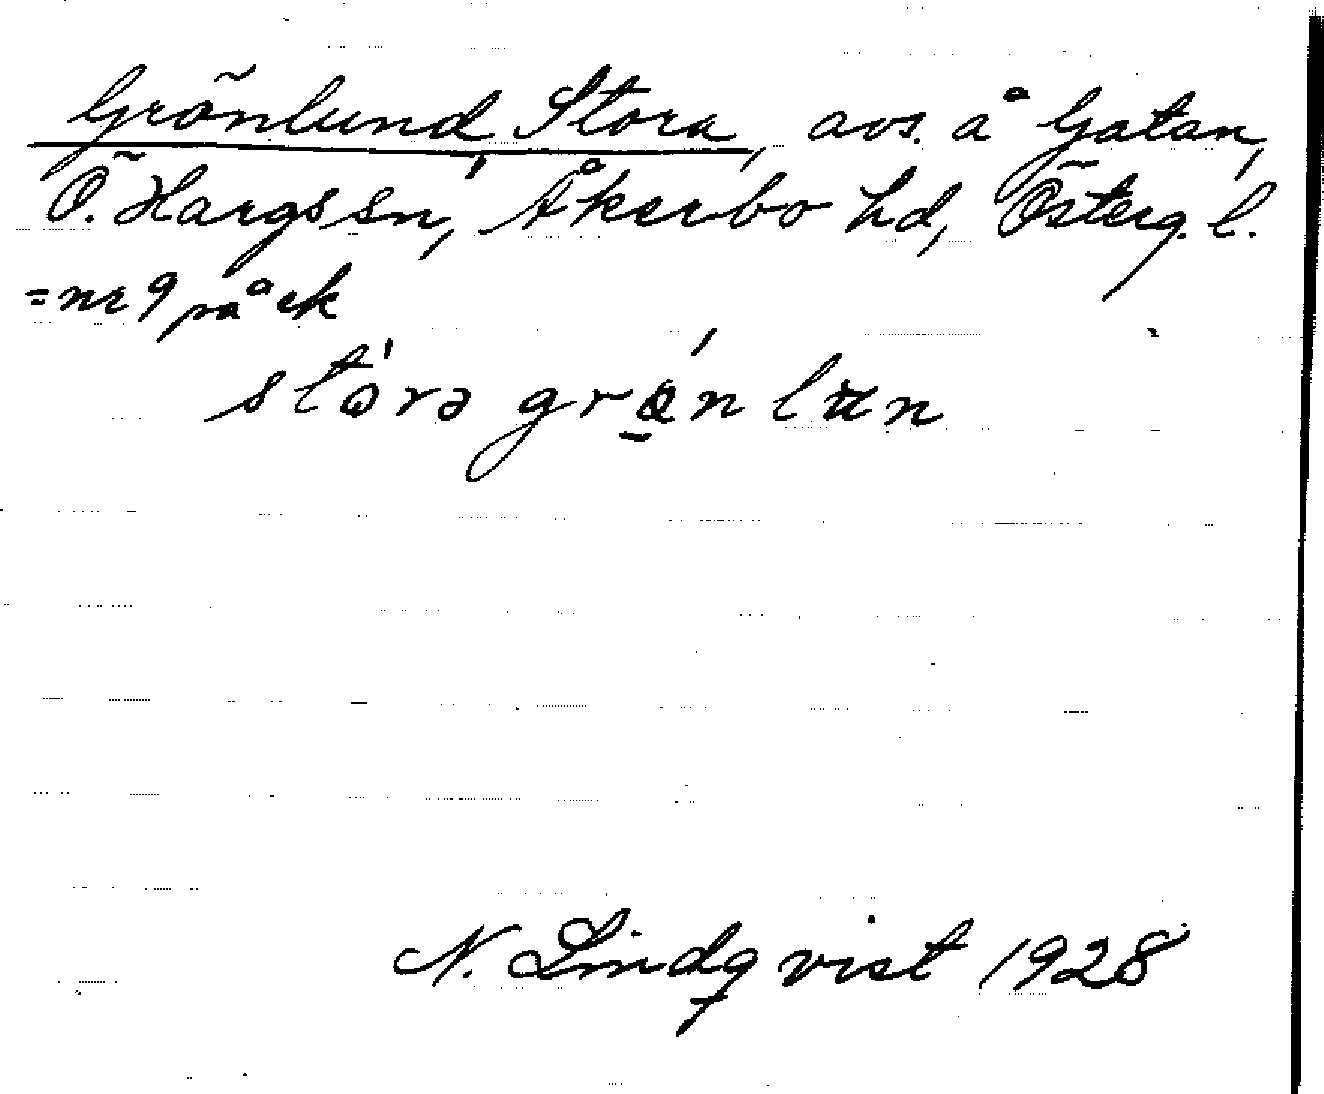 Grönlund, Stora, avs. å Gatan,
Ö. Hargs sn, Åkerbo hd, Österg. l.
= nr 9 på ek
N. Lindqvist 1928